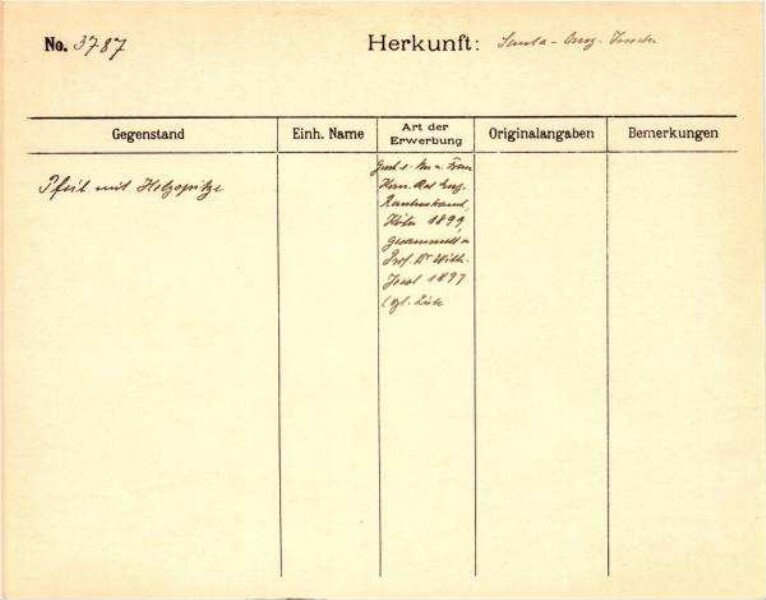 No. 3787
Herkunft: Santa - Cruz - Inseln
Gegenstand
Einh. Name
Art der Erwerbung
Originalangaben
Bemerkungen
Pfeil mit Holzspitze
Frau
Eug.
Rautenstrauch,
Köln 1899
gesammelt v.
Prof. Dr Wilh.
Joest 1897
(vgl. Liste